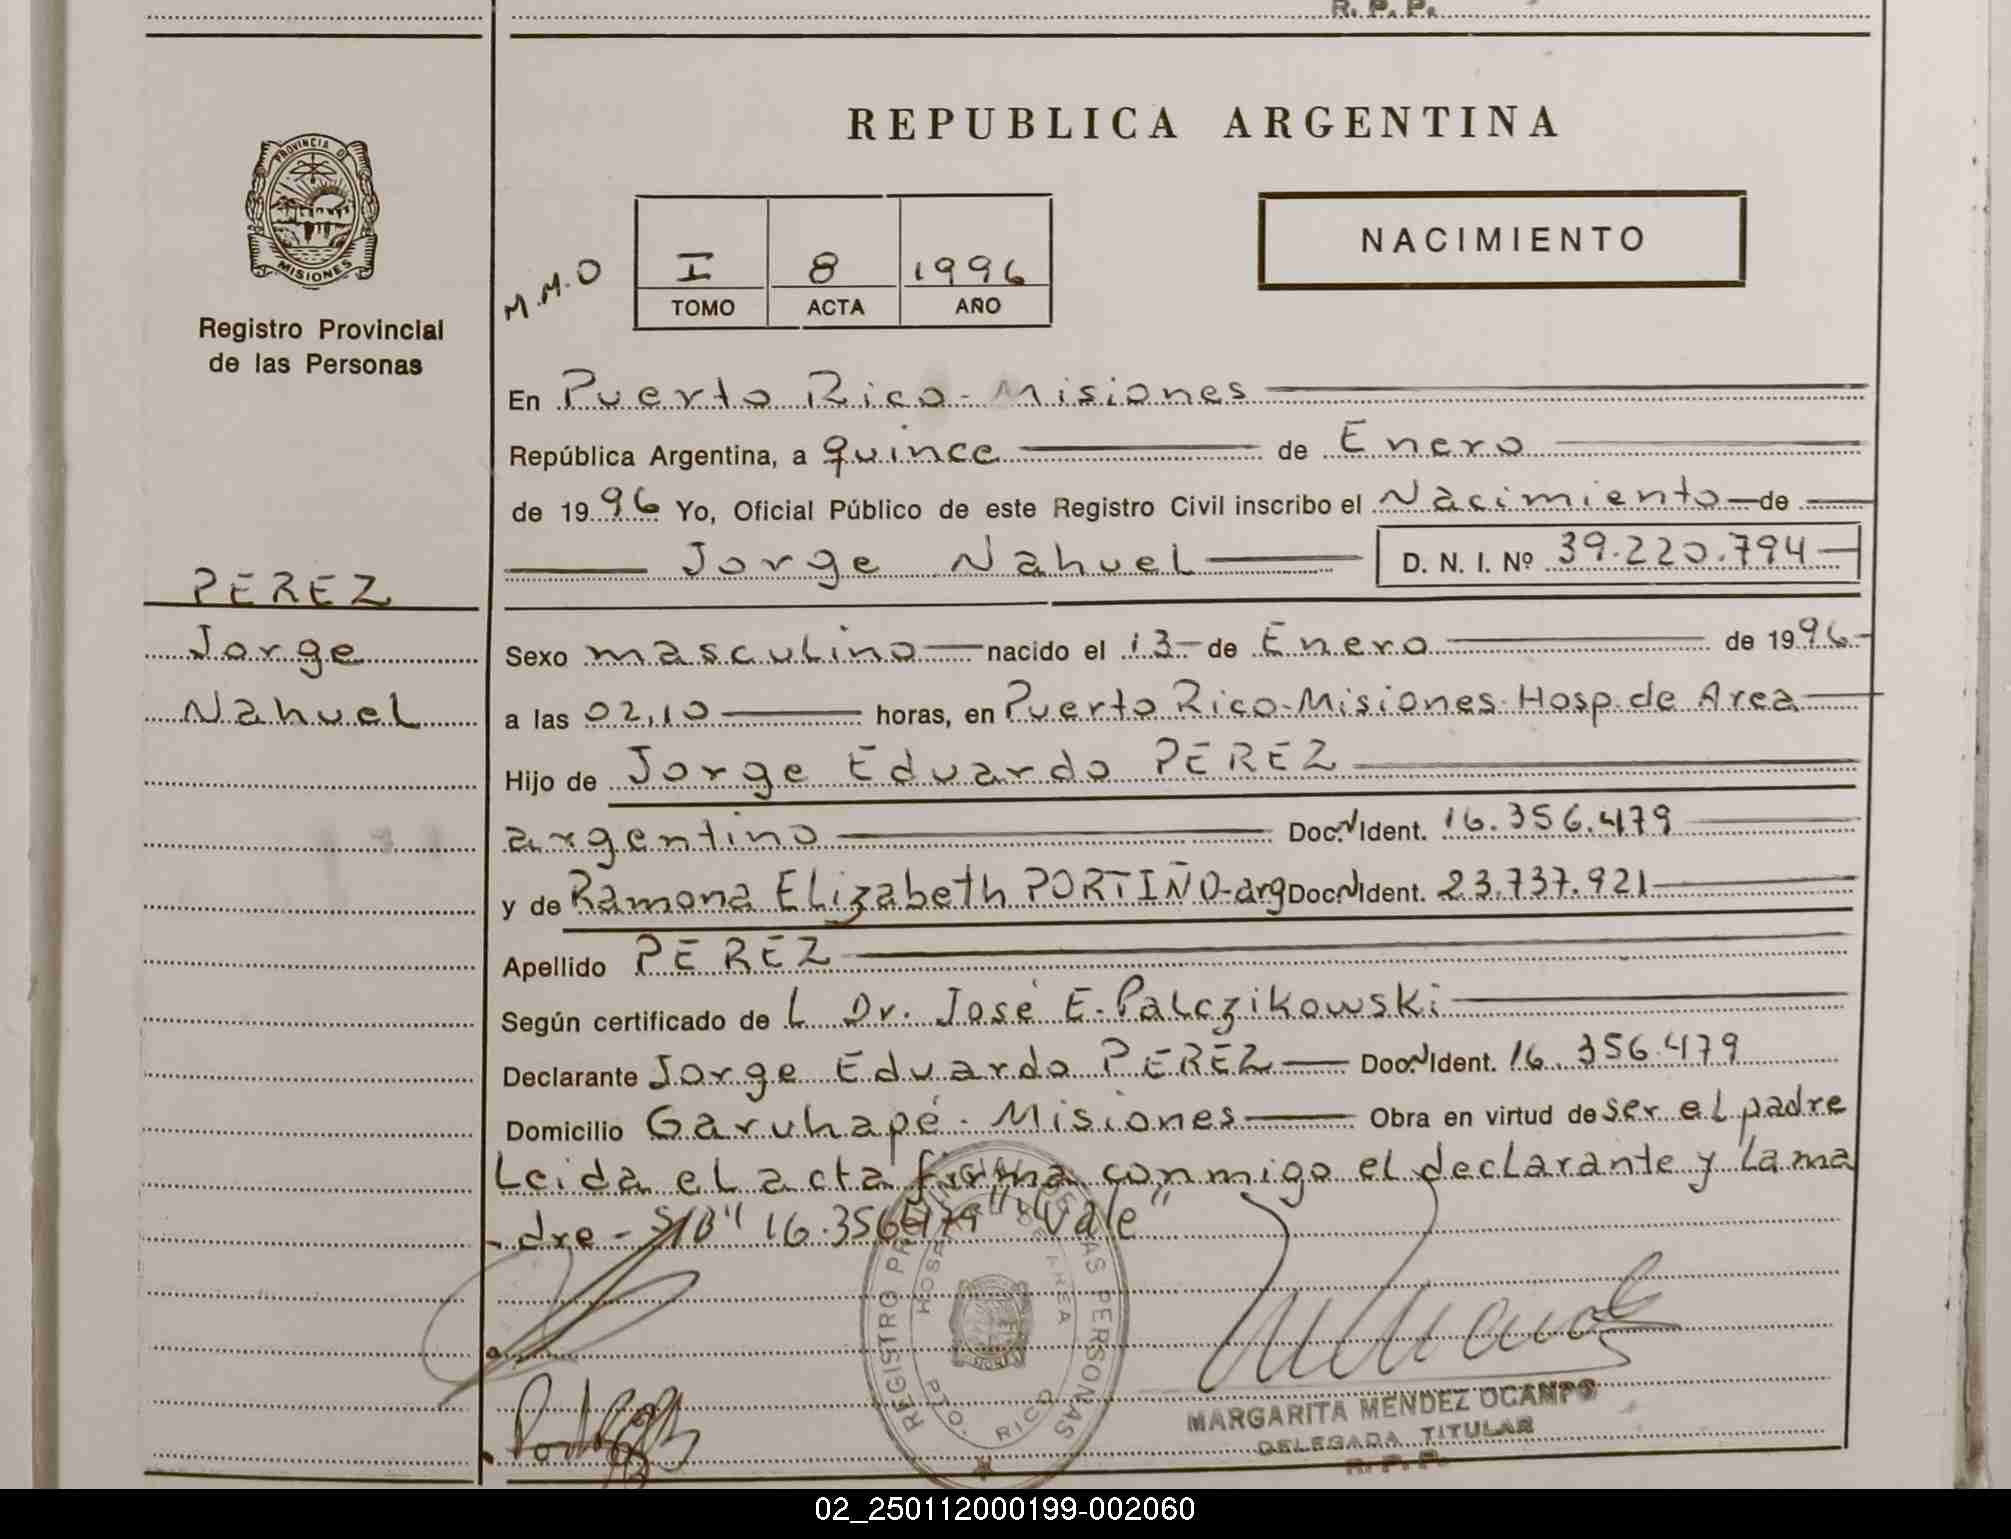 R. P. P.
REPUBLICA ARGENTINA
PROVINCIA DE
MISIONES
Registro Provincial
de las Personas
M.M.O
I 8 1996
TOMO ACTA AÑO
NACIMIENTO
En Puerto Rico - Misiones
República Argentina, a quince de Enero
de 1996 Yo, Oficial Público de este Registro Civil inscribo el Nacimiento de
Jorge Nahuel D. N. I. Nº 39.220.794
PEREZ
Jorge
Nahuel
Sexo masculino nacido el 13 de Enero de 1996
a las 02,10 horas, en Puerto Rico-Misiones-Hosp. de Area
Hijo de Jorge Eduardo PEREZ
argentino Doc. N Ident. 16.356.479
y de Ramona Elizabeth PORTIÑO-arg Doc. N Ident. 23.737.921
Apellido PEREZ
Según certificado de L Dr. José E. Palczikowski
Declarante Jorge Eduardo PEREZ Doc. N Ident. 16.356.479
Domicilio Garuhapé - Misiones Obra en virtud de ser el padre
Leida el acta firma conmigo el declarante y la ma
-dre - S/B" 16.356479" "Vale"
REGISTRO PROVINCIAL DE LAS PERSONAS
HOSP. DE AREA
PTO. RICO
MARGARITA MENDEZ OCAMPO
DELEGADA TITULAR
R. P. P.
02_250112000199-002060